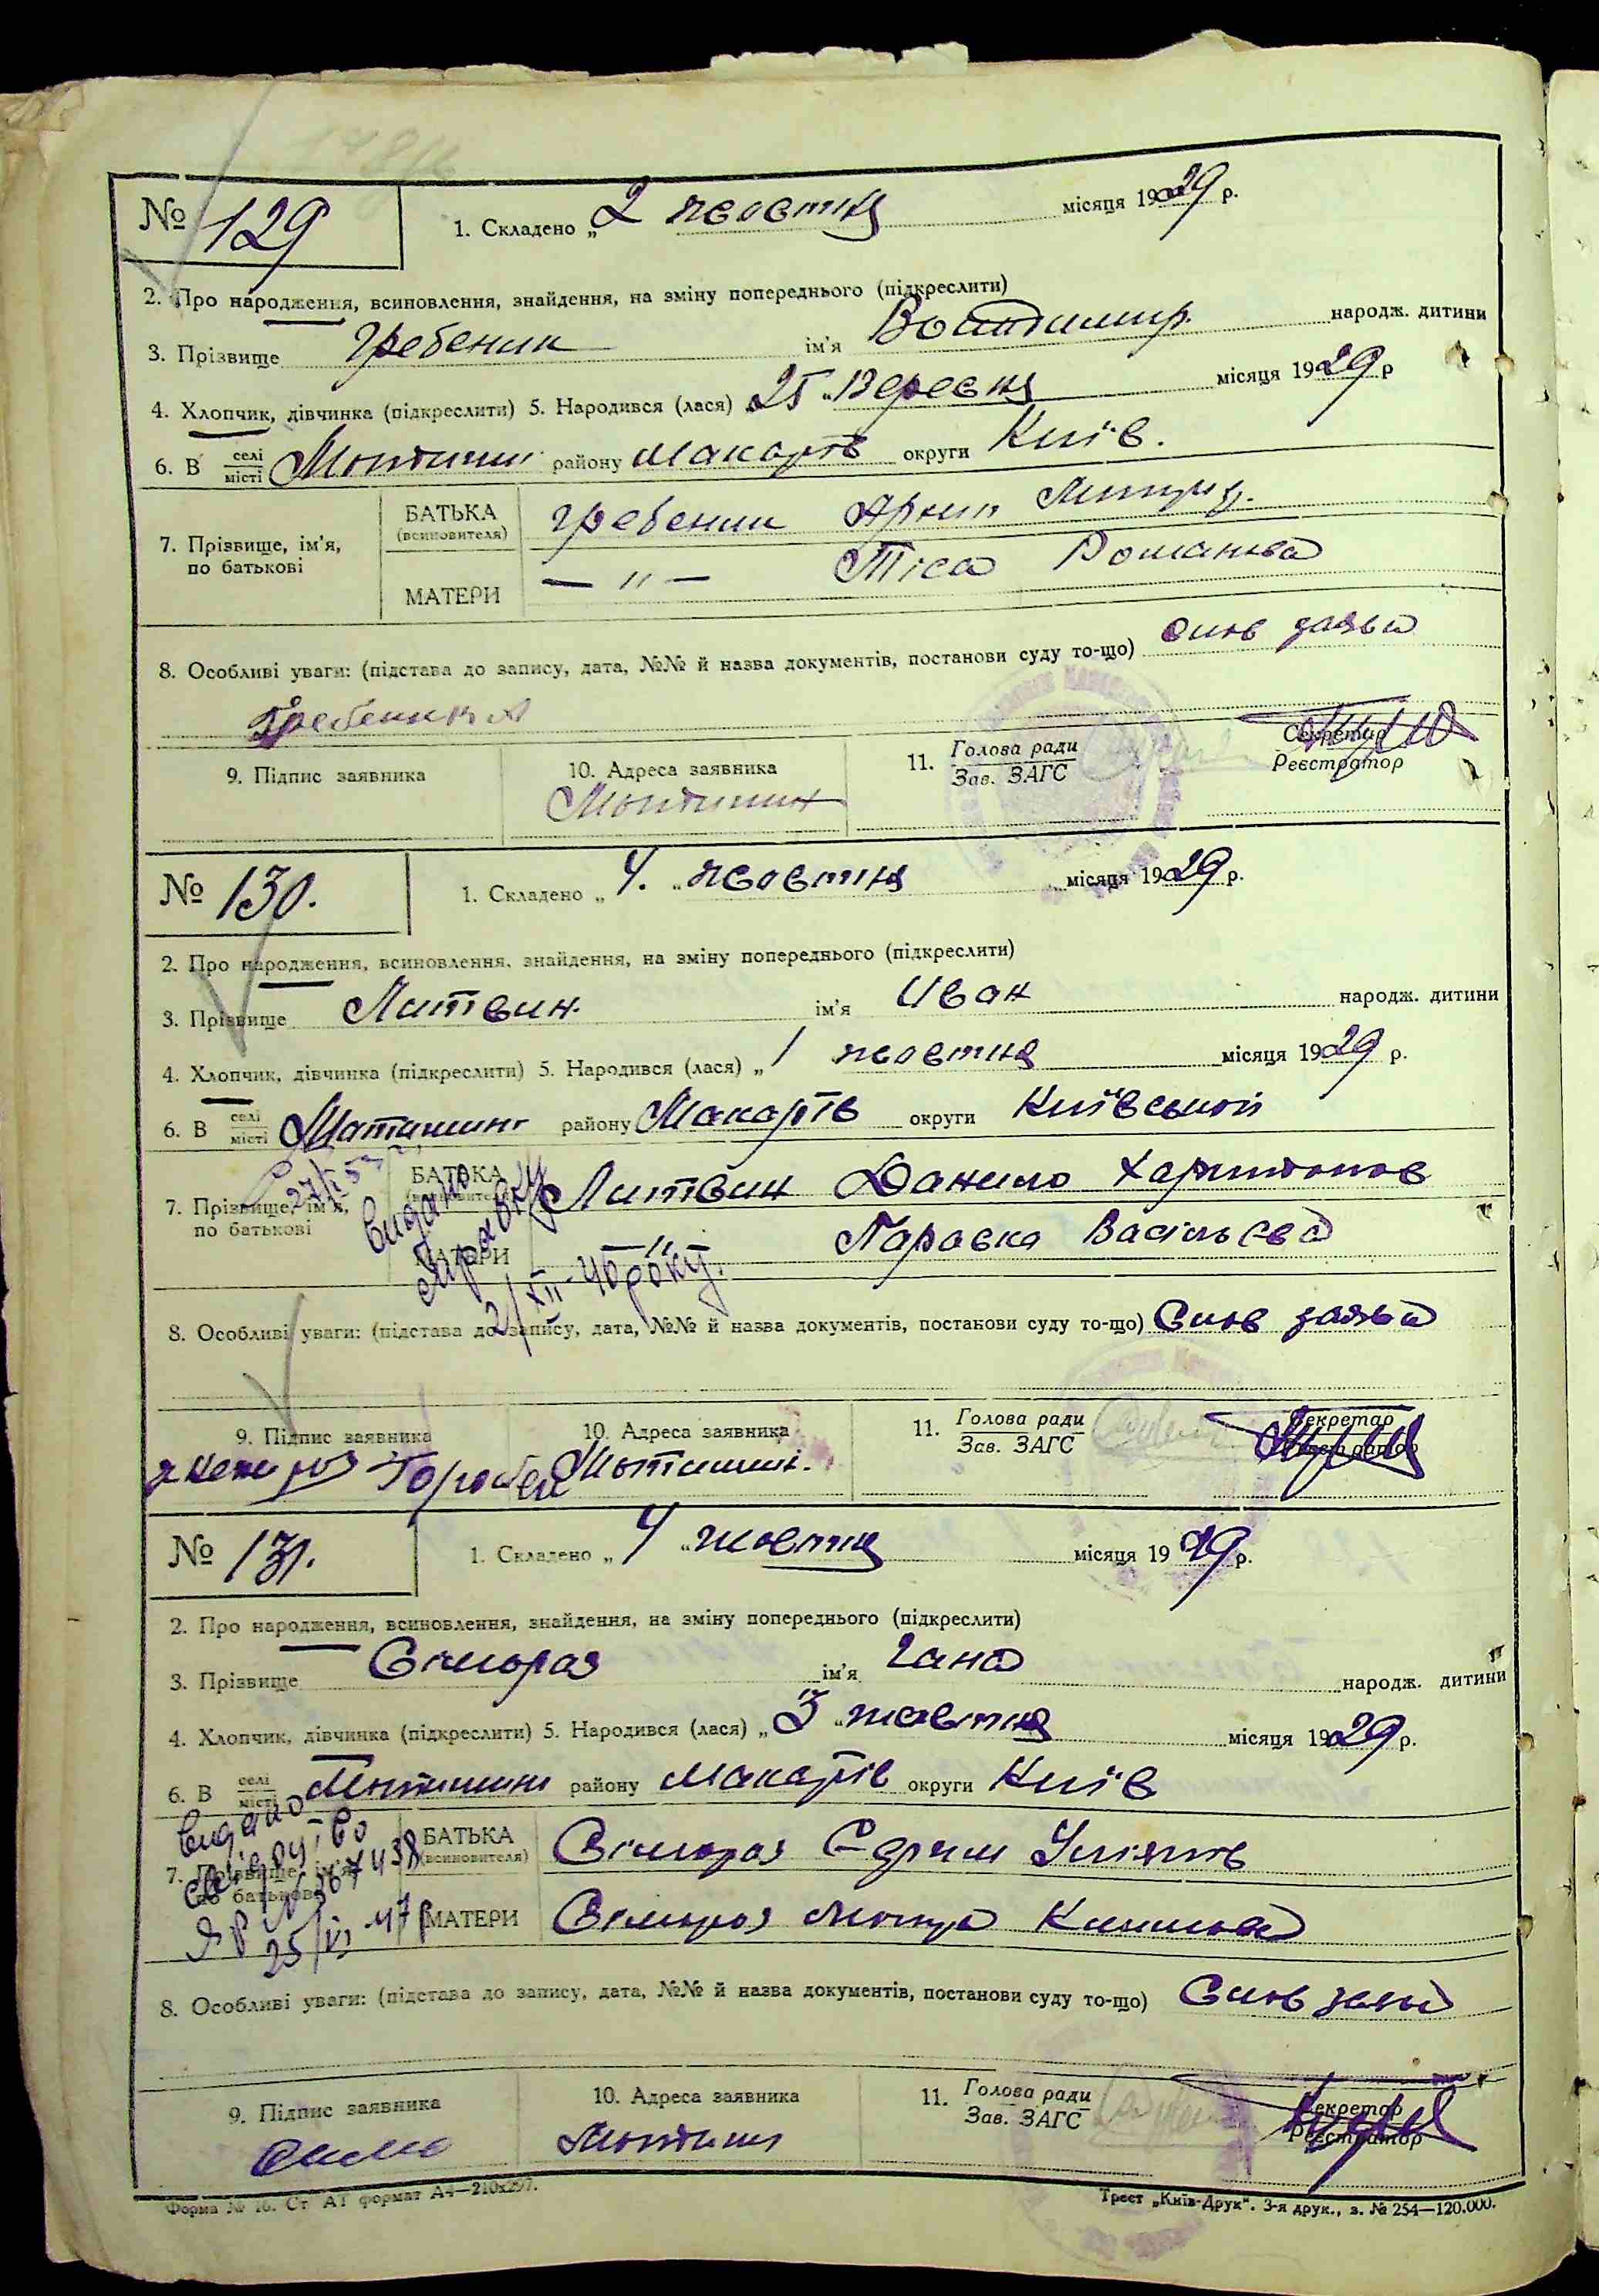 № 129
1. Складено „2 жовтня місяця 1929 р.
2. Про народження, всиновлення, знайдення, на зміну попереднього (підкреслити)
3. Прізвище Гребеник ім'я Володимир народж. дитини
4. Хлопчик, дівчинка (підкреслити) 5. Народився (лася) „25 „Вересня місяця 1929 р
6. В селі місті Мотижин району Макарів округи Київ.
7. Прізвище, ім'я, по батькові
БАТЬКА (всиновителя) Гребеник
МАТЕРИ — „ — Романова
8. Особливі уваги: (підстава до запису, дата, №№ й назва документів, постанови суду то-що) Слов заява
Гребеник А
9. Підпис заявника
10. Адреса заявника
Мотижин
11. Голова ради Зав. ЗАГС
Секретар Реєстратор
№ 130.
1. Складено „ 4. „ жовтня місяця 1929 р.
2. Про народження, всиновлення, знайдення, на зміну попереднього (підкреслити)
3. Прізвище Литвин. ім'я Иван народж. дитини
4. Хлопчик, дівчинка (підкреслити) 5. Народився (лася) „ 1 жовтня місяця 1929 р.
6. В селі місті Мотижин району Макарів округи Київської
7. Прізвище, ім'я, по батькові
БАТЬКА (всиновителя) Литвин Данило Харитонов
МАТЕРИ — „ — Параска Васільєва
видано справку 2/XII-40 року.
8. Особливі уваги: (підстава до запису, дата, №№ й назва документів, постанови суду то-що) Слов заява
9. Підпис заявника
10. Адреса заявника
Мотижин.
11. Голова ради Зав. ЗАГС
Секретар Реєстратор
№ 131.
1. Складено „ 4 „ жовтня місяця 1929 р.
2. Про народження, всиновлення, знайдення, на зміну попереднього (підкреслити)
3. Прізвище ім'я Гана народж. дитини
4. Хлопчик, дівчинка (підкреслити) 5. Народився (лася) „ 3 „ жовтня місяця 1929 р.
6. В селі місті Мотижин району Макарів округи Київ
видано свідоцтво
7. Прізвище, ім'я, по батькові
БАТЬКА (всиновителя)
МАТЕРИ
25/VI 47 р
8. Особливі уваги: (підстава до запису, дата, №№ й назва документів, постанови суду то-що) Слов заява
9. Підпис заявника
10. Адреса заявника
Мотижин
11. Голова ради Зав. ЗАГС
Секретар Реєстратор
Форма № 16. Ст. А1 формат А4—210х297.
Трест „Київ-Друк“. 3-я друк., з. № 254—120.000.